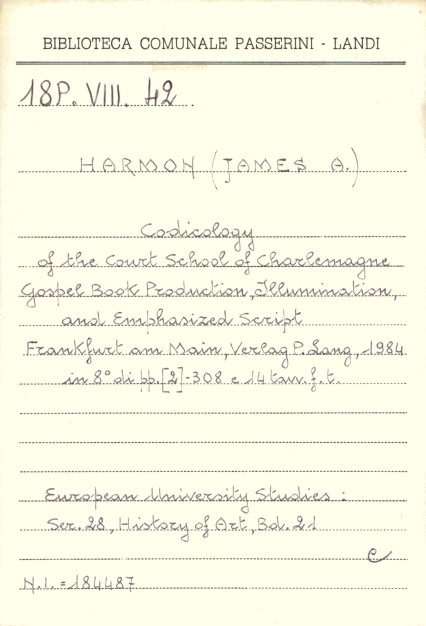 BIBLIOTECA COMUNALE PASSERINI - LANDI
18P. VIII. 42.
HARMON (JAMES A.)
Codicology
of the Court School of Charlemagne
Gospel Book Production, Illumination,
and Emphasized Script
Frankfurt am Main, Verlag P. Lang, 1984
in 8° di pp. [2]-308 e 14 tavv. f. t.
European University Studies :
Ser. 28, History of Art, Bd. 21
e
N.I. = 184487